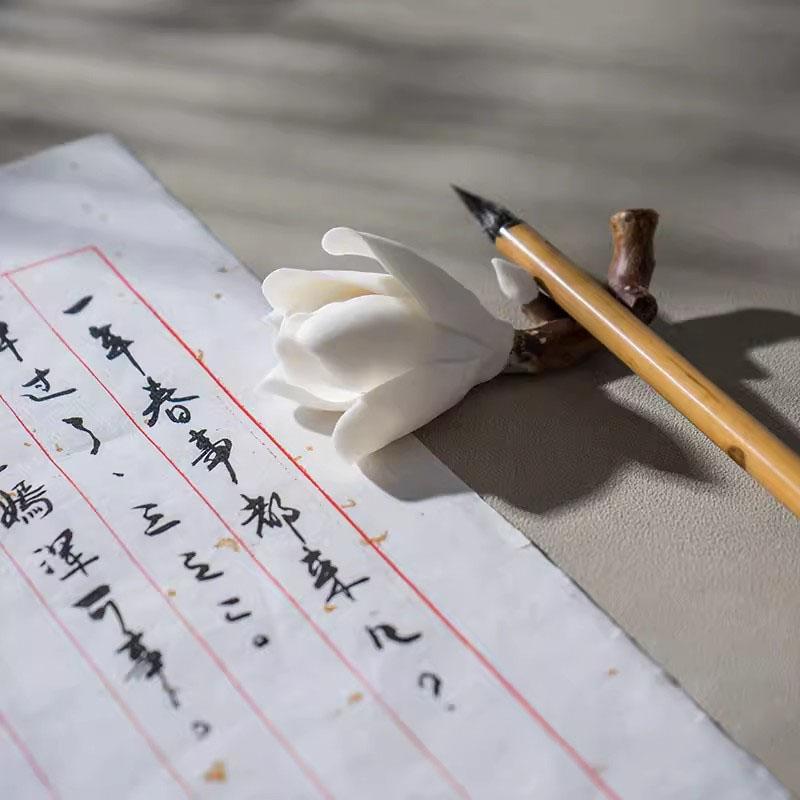 一年春事都来几？
过了、三之二。
嫣浑可事。